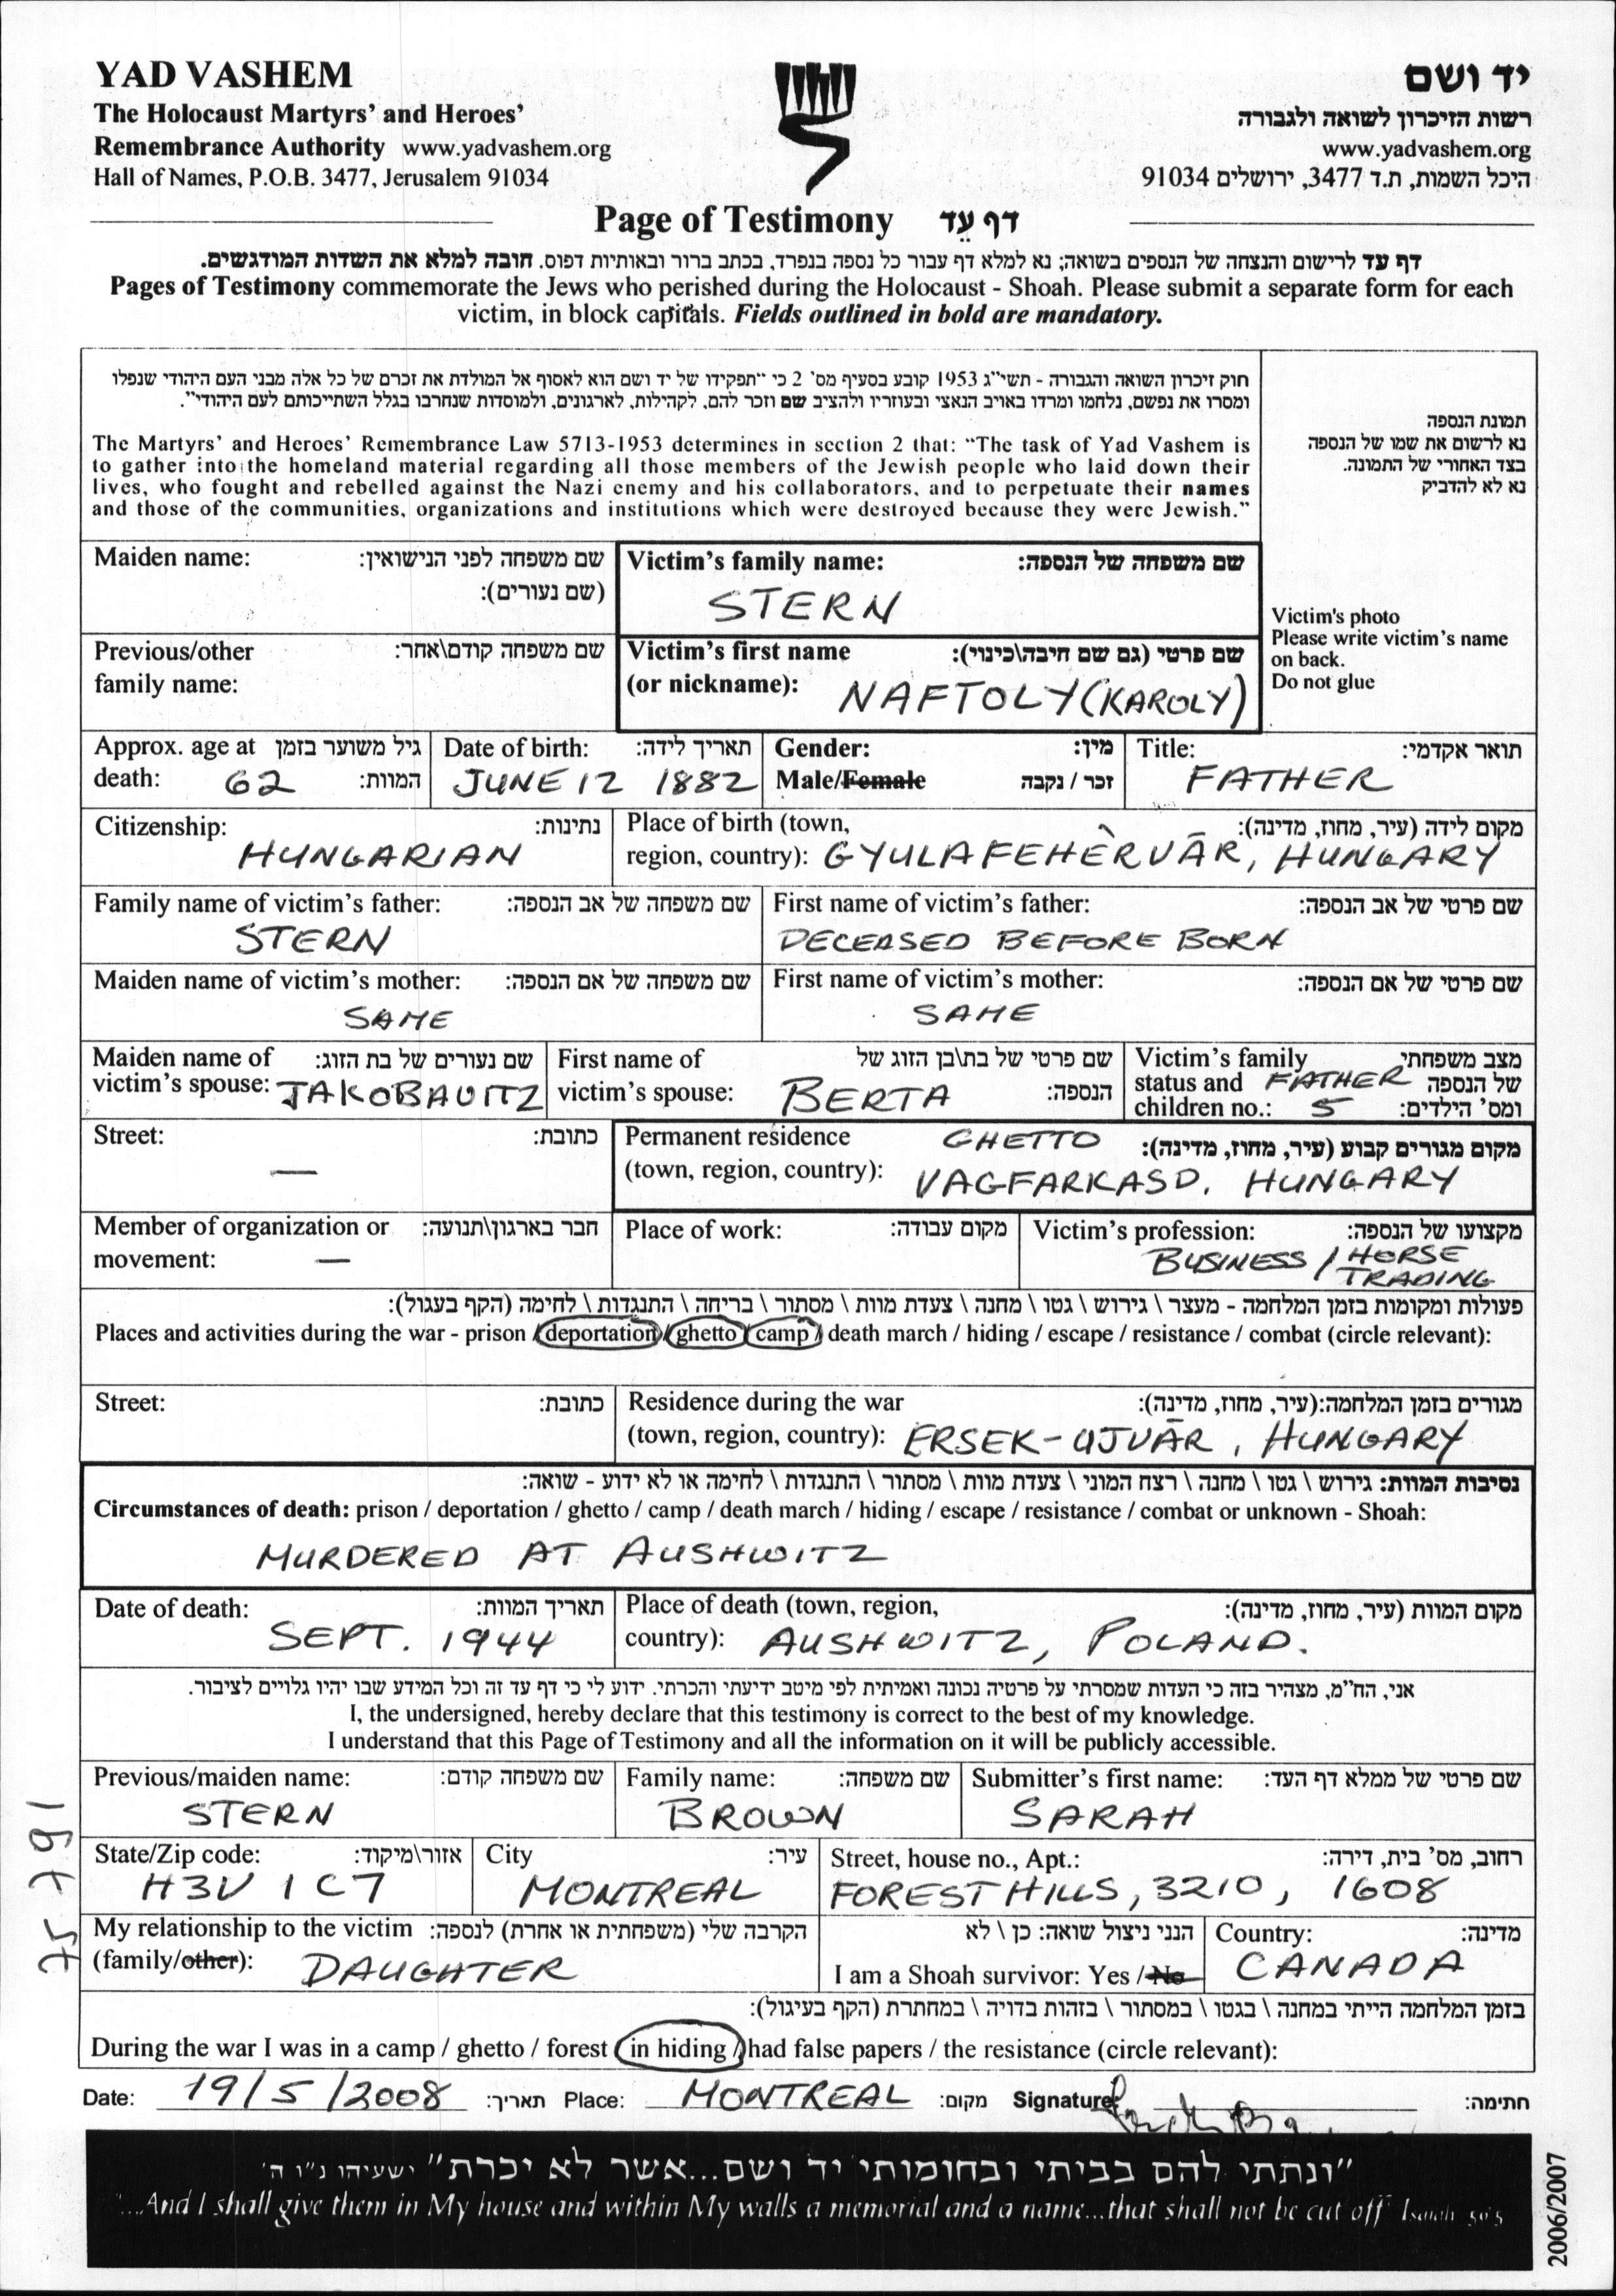 YAD VASHEM
The Holocaust Martyrs' and Heroes'
Remembrance Authority www.yadvashem.org
Hall of Names, P.O.B. 3477, Jerusalem 91034
יד ושם
רשות הזיכרון לשואה ולגבורה
www.yadvashem.org
היכל השמות, ת.ד 3477, ירושלים 91034
Page of Testimony דף עֵד
דף עד לרישום והנצחה של הנספים בשואה; נא למלא דף עבור כל נספה בנפרד, בכתב ברור ובאותיות דפוס. חובה למלא את השדות המודגשים.
Pages of Testimony commemorate the Jews who perished during the Holocaust - Shoah. Please submit a separate form for each
victim, in block capitals. Fields outlined in bold are mandatory.
חוק זיכרון השואה והגבורה - תשי"ג 1953 קובע בסעיף מס' 2 כי "תפקידו של יד ושם הוא לאסוף אל המולדת את זכרם של כל אלה מבני העם היהודי שנפלו
ומסרו את נפשם, נלחמו ומרדו באויב הנאצי ובעוזריו ולהציב שם וזכר להם, לקהילות, לארגונים, ולמוסדות שנחרבו בגלל השתייכותם לעם היהודי".
The Martyrs' and Heroes' Remembrance Law 5713-1953 determines in section 2 that: "The task of Yad Vashem is
to gather into the homeland material regarding all those members of the Jewish people who laid down their
lives, who fought and rebelled against the Nazi enemy and his collaborators, and to perpetuate their names
and those of the communities, organizations and institutions which were destroyed because they were Jewish."
תמונת הנספה
נא לרשום את שמו של הנספה
בצד האחורי של התמונה.
נא לא להדביק
Victim's photo
Please write victim's name
on back.
Do not glue
Maiden name: שם משפחה לפני הנישואין:
(שם נעורים):
Victim's family name: שם משפחה של הנספה:
STERN
Previous/other שם משפחה קודם\אחר:
family name:
Victim's first name שם פרטי (גם שם חיבה\כינוי):
(or nickname): NAFTOLY (KAROLY)
Approx. age at גיל משוער בזמן
death: 62 המוות:
Date of birth: תאריך לידה:
JUNE 12 1882
Gender: מין:
Male/Female זכר / נקבה
Title: תואר אקדמי:
FATHER
Citizenship: נתינות:
HUNGARIAN
Place of birth (town, מקום לידה (עיר, מחוז, מדינה):
region, country): GYULAFEHÈRVĀR, HUNGARY
Family name of victim's father: שם משפחה של אב הנספה:
STERN
First name of victim's father: שם פרטי של אב הנספה:
DECEASED BEFORE BORN
Maiden name of victim's mother: שם משפחה של אם הנספה:
SAME
First name of victim's mother: שם פרטי של אם הנספה:
SAME
Maiden name of שם נעורים של בת הזוג:
victim's spouse: JAKOBAUITZ
First name of שם פרטי של בת\בן הזוג של
victim's spouse: BERTA הנספה:
Victim's family מצב משפחתי
status and FATHER של הנספה
children no.: 5 ומס' הילדים:
Street: כתובת:
—
Permanent residence GHETTO מקום מגורים קבוע (עיר, מחוז, מדינה):
(town, region, country): VAGFARKASD, HUNGARY
Member of organization or חבר בארגון\תנועה:
movement: —
Place of work: מקום עבודה:
Victim's profession: מקצועו של הנספה:
BUSINESS / HORSE
TRADING
פעולות ומקומות בזמן המלחמה - מעצר \ גירוש \ גטו \ מחנה \ צעדת מוות \ מסתור \ בריחה \ התנגדות \ לחימה (הקף בעגול):
Places and activities during the war - prison / deportation / ghetto / camp / death march / hiding / escape / resistance / combat (circle relevant):
Street: כתובת:
Residence during the war מגורים בזמן המלחמה:(עיר, מחוז, מדינה):
(town, region, country): ERSEK-UJVĀR, HUNGARY
נסיבות המוות: גירוש \ גטו \ מחנה \ רצח המוני \ צעדת מוות \ מסתור \ התנגדות \ לחימה או לא ידוע - שואה:
Circumstances of death: prison / deportation / ghetto / camp / death march / hiding / escape / resistance / combat or unknown - Shoah:
MURDERED AT AUSHWITZ
Date of death: תאריך המוות:
SEPT. 1944
Place of death (town, region, מקום המוות (עיר, מחוז, מדינה):
country): AUSHWITZ, POLAND.
אני, הח"מ, מצהיר בזה כי העדות שמסרתי על פרטיה נכונה ואמיתית לפי מיטב ידיעתי והכרתי. ידוע לי כי דף עד זה וכל המידע שבו יהיו גלויים לציבור.
I, the undersigned, hereby declare that this testimony is correct to the best of my knowledge.
I understand that this Page of Testimony and all the information on it will be publicly accessible.
Previous/maiden name: שם משפחה קודם:
STERN
Family name: שם משפחה:
BROWN
Submitter's first name: שם פרטי של ממלא דף העד:
SARAH
State/Zip code: אזור\מיקוד:
H3V 1C7
City עיר:
MONTREAL
Street, house no., Apt.: רחוב, מס' בית, דירה:
FOREST HILLS, 3210, 1608
My relationship to the victim הקרבה שלי (משפחתית או אחרת) לנספה:
(family/other): DAUGHTER
הנני ניצול שואה: כן \ לא
I am a Shoah survivor: Yes / No
Country: מדינה:
CANADA
בזמן המלחמה הייתי במחנה \ בגטו \ במסתור \ בזהות בדויה \ במחתרת (הקף בעיגול):
During the war I was in a camp / ghetto / forest / in hiding / had false papers / the resistance (circle relevant):
Date: 19/5/2008 תאריך: Place: MONTREAL מקום: Signature: חתימה:
"ונתתי להם בביתי ובחומותי יד ושם...אשר לא יכרת" ישעיהו נ"ו ה'
"...And I shall give them in My house and within My walls a memorial and a name...that shall not be cut off" Isaiah 56:5
2006/2007